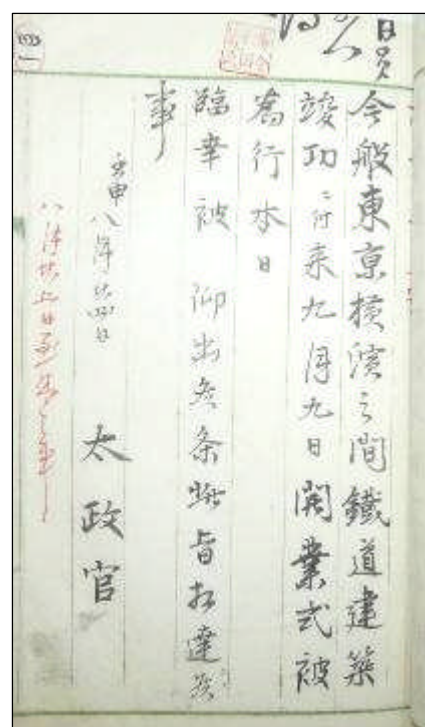 今般東京横濱之間鐵道建築
竣功ニ付来九月九日開業式被
為行本日
臨幸被 仰出候条此旨相達候
事
壬申八月廿四日
太政官